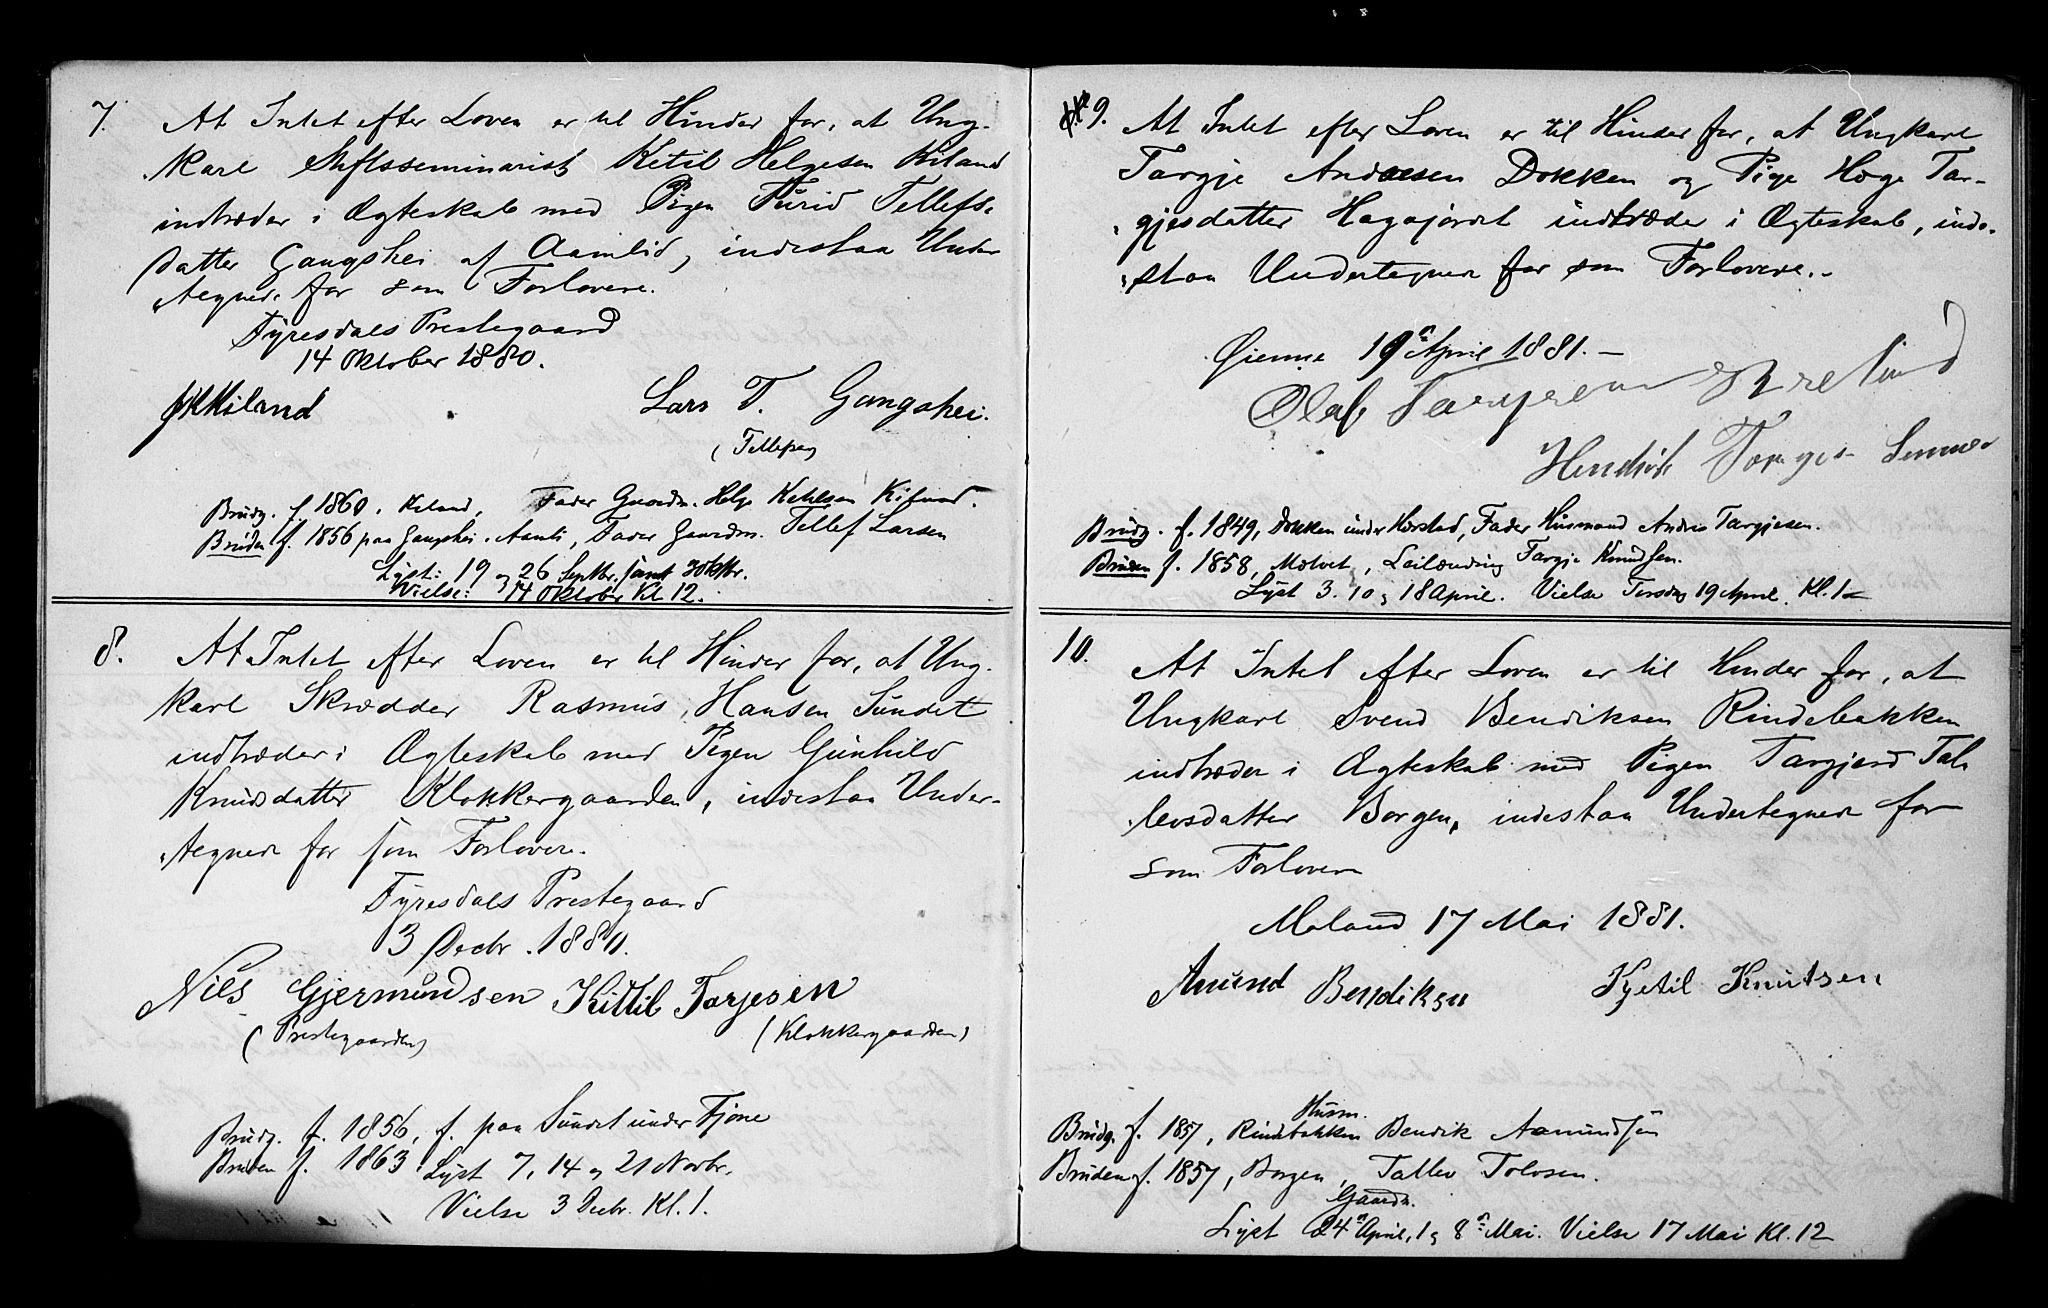 7.
At Intet efter Loven er til Hinder for, at Ung-
karl Stiftsseminarist Ketil Helgesen Kiland
indtræder i Ægteskab med Pigen Turid Tellefs-
datter Gangshei af Aamlid, indestaa Under
tegnede for som Forlovere.
Fyresdals Prestegaard
14 Oktober 1880.
Kiland
Lars T. Gangshei.
(Tellefsen)
Brudg. f. 1860. Kiland, Fader Gaardm. Helge Ketilsen Kiland.
Bruden f. 1856 paa Gangshei. Aamli, Fader Gaardm. Tellef Larsen
Lyst: 19 og 26 Septbr. samt 3 Oktbr.
Vielse: 14 Oktober Kl 12.
8.
At Intet efter Loven er til Hinder for, at Ung-
karl Skrædder Rasmus Hansen Sundet
indtræder i Ægteskab med Pigen Gunhild
Knudsdatter Klokkergaarden, indestaa Under-
tegnede for som Forlovere.
Fyresdals Prestegaard
3 Decbr. 1880.
Nils Gjermundsen Kittil Tarjesen
(Prestegaarden) (Klokkergaarden)
Brudg. f. 1856, f. paa Sundet under Fjone
Bruden f. 1863. Lyst 7, 14 og 21 Novbr.
Vielse 3 Decbr. Kl. 1.
9.
At Intet efter Loven er til Hinder for, at Ungkarl
Targje Andersen Dokken og Pige Hæge Tar-
gjesdatter Hagajordet indtræder i Ægteskab, inde-
staa Undertegnede for som Forlovere.-
Øienne 19de April 1881.-
Olaf Targjesen
Hendrik Targje
Brudg. f. 1849, Dokken under Harstad, Fader Husmand Andres Targjesen.
Bruden f. 1858, Moltvet, Leilænding Targje Knudsen.
Lyst 3. 10 og 18 April. Vielse Tirsdag 19 April. Kl. 12
10.
At Intet efter Loven er til Hinder for, at
Ungkarl Svend Bendiksen Rindebakken
indtræder i Ægteskab med Pigen Targjerd Tal-
levsdatter Borgen, indestaa Undertegnede for
som Forlovere
Moland 17 Mai 1881.
Amund Bendiksen Kjetil Knutsen
Husm.
Brudg. f. 1857, Rindebakken Bendik Aamundsen
Bruden f. 1857, Borgen, Tallev Tolvsen.
Gaardm.
Lyst 24de April, 1 og 8de Mai. Vielse 17 Mai Kl. 12